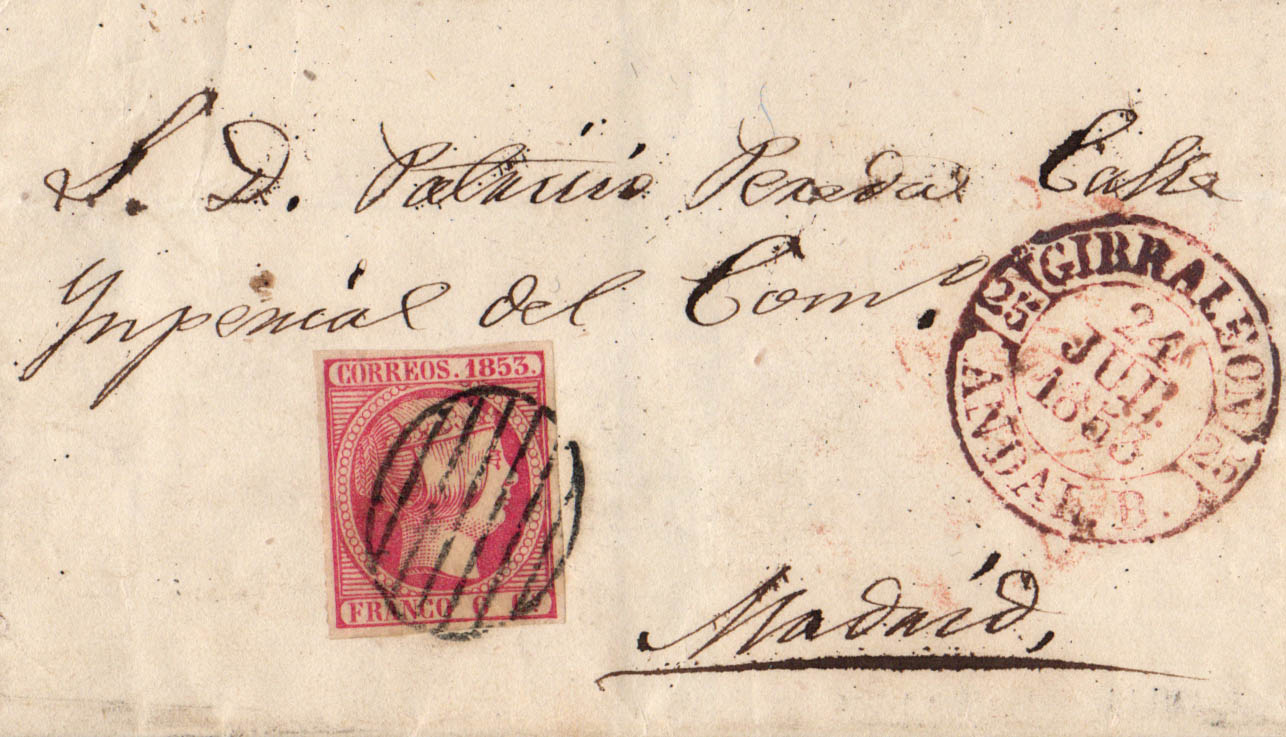 S. D. Patricio Pereda Calle
Ynperial del Com.º
CORREOS. 1853.
FRANCO 6 C.
GIBRALEON 25
24
JUL.
1853
ANDAL. B.
Madrid,